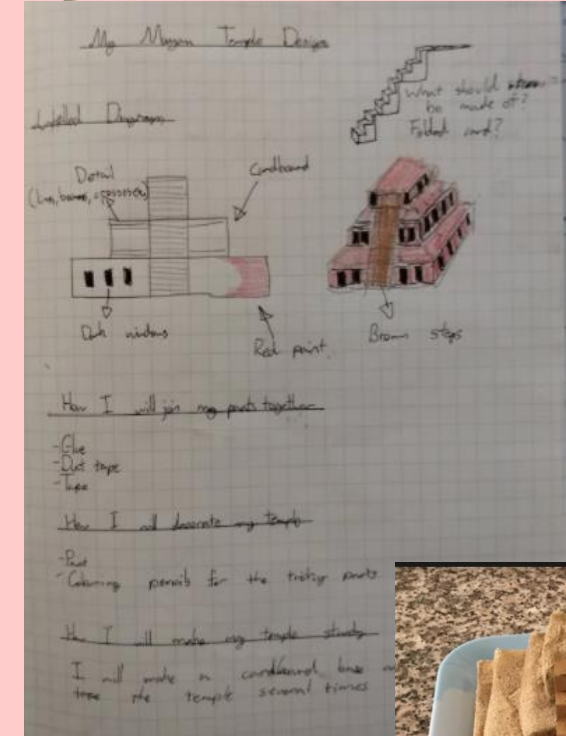 My Mayan Temple Design
What should
be made of?
Folded card?
Labelled Diagram
Detail
Cardboard
Dark windows
Red paint.
Brown steps
How I will join my parts together
-Glue
-Duct tape
-Tape
How I will decorate my temple
-Paint
-Colouring pencils for the tricky parts
How I will make my temple sturdy
I will make a cardboard base
tape the temple several times